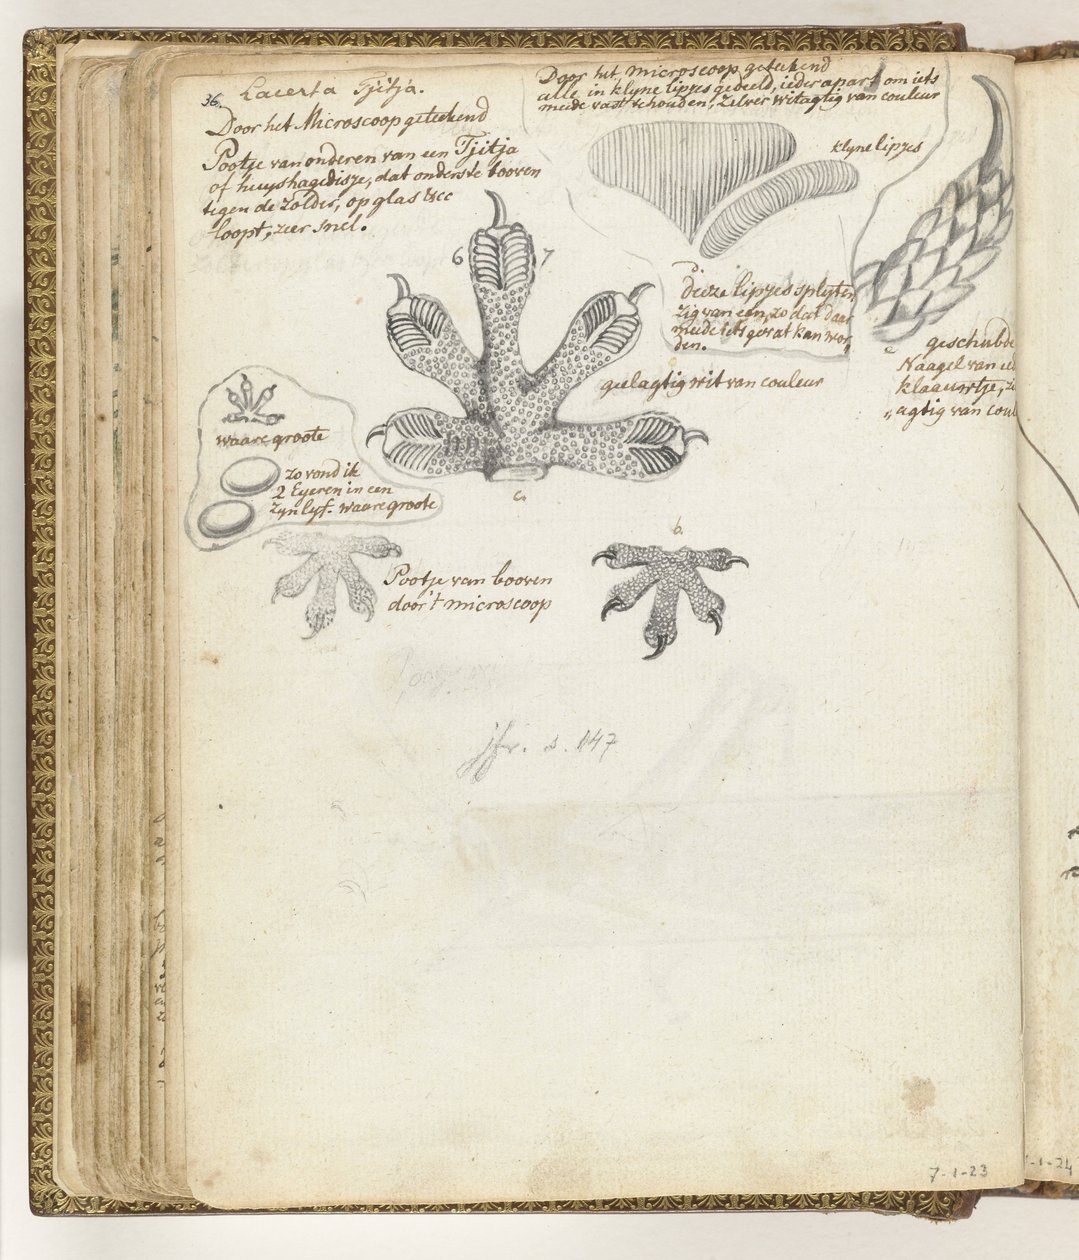 36. Lacerta Tjitja.
Door het Microscoop geteekend
Pootje van onderen van een Tjitja
of huyshagedisje, dat onderste booven
tegen de zolder, op glas &cc
loopt, zeer snel.
Door het microscoop geteekend
alle in klyne lipjes gedeeld, ieder apart om iets
meede vast te houden, zilver witagtig van couleur
klyne lipjes
6 7
deeze lipjes splyten
zig van een, zo dat daar
meede iets gevat kan wor
den.
geelagtig wit van couleur
geschubde
Naagel van
klaauwtje,
agtig van
waare groote
zo vond ik
2 Eyeren in een
zyn lyf. waare groote
c.
b.
Pootje van booven
door 't microscoop
fr. s. 147
7-1-23
1-24